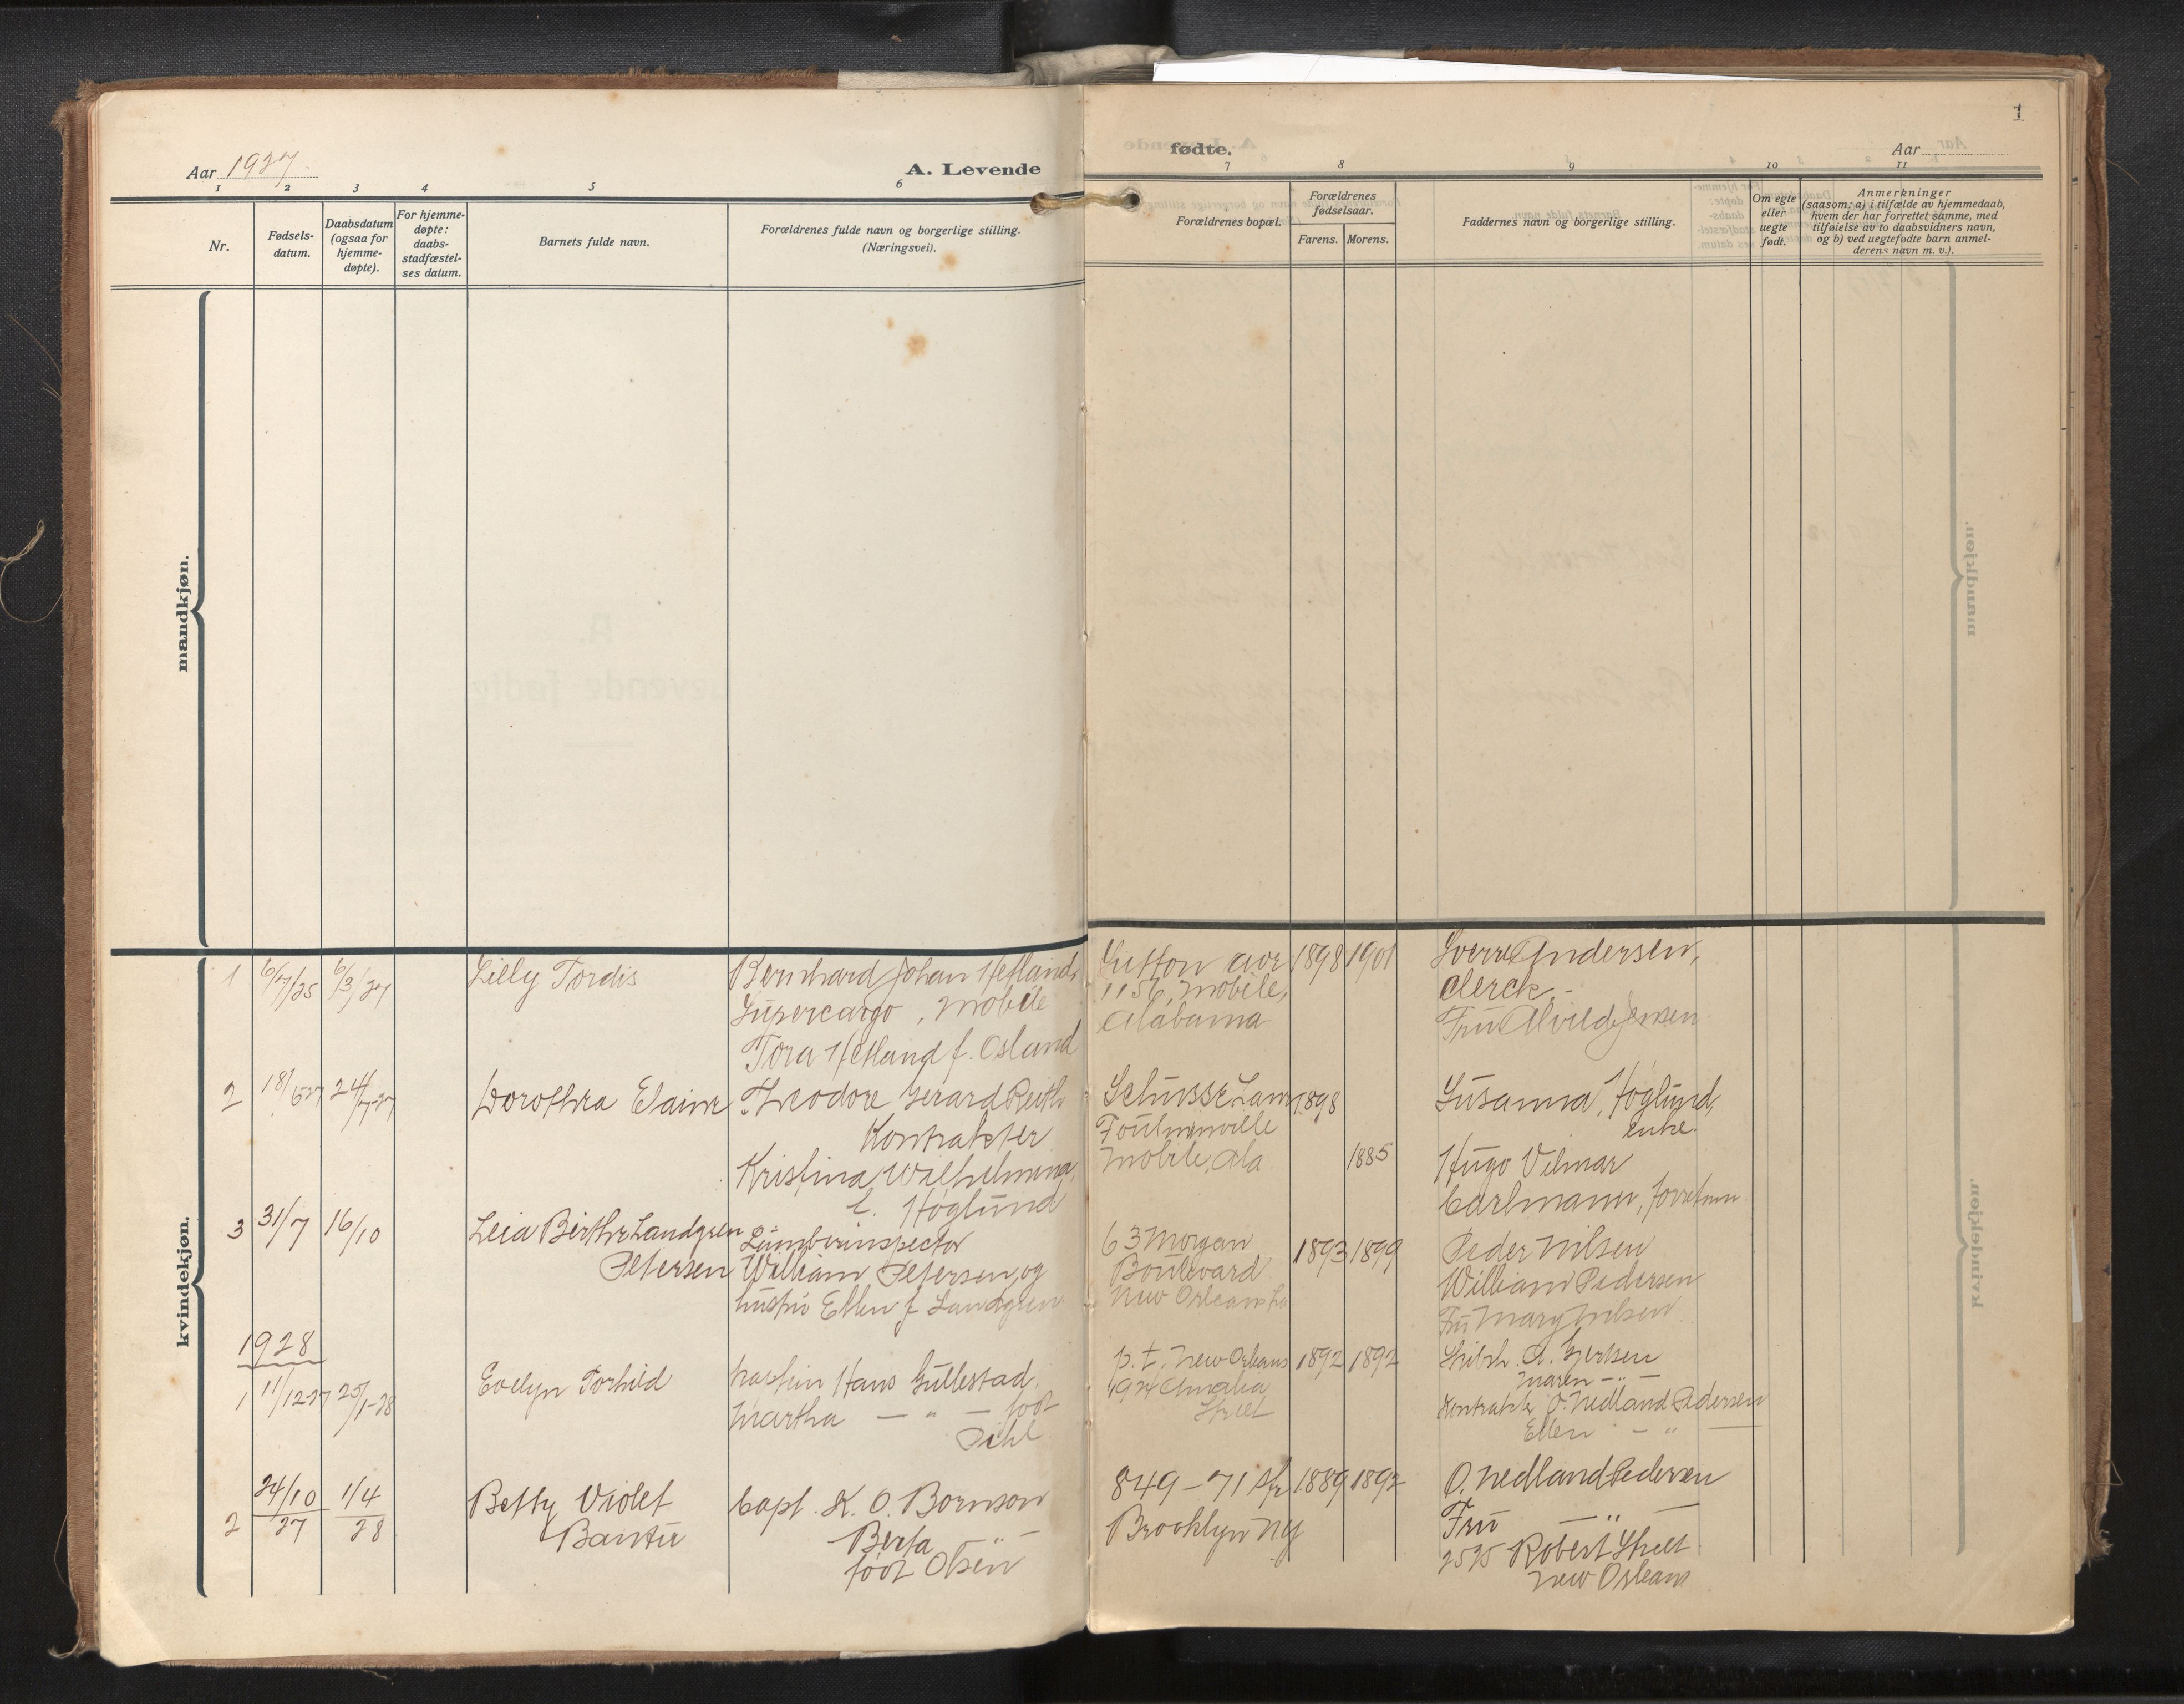 1
Aar 1927.
A. Levende
fødte.
Aar
1 2 3 4 5 6
7 8 9 10 11
Nr.
Fødsels-
datum.
Daabsdatum
(ogsaa for
hjemme-
døpte).
For hjemme-
døpte:
daabs-
stadfæstel-
ses datum.
Barnets fulde navn.
Forældrenes fulde navn og borgerlige stilling.
(Næringsvei).
Forældrenes bopæl.
Forældrenes
fødselsaar.
Farens. Morens.
Faddernes navn og borgerlige stilling.
Om egte
eller
uegte
født.
Anmerkninger
(saasom: a) i tilfælde av hjemmedaab,
hvem der har forrettet samme, med
tilføielse av to daabsvidners navn,
og b) ved uegtefødte barn anmel-
derens navn m. v.).
mandkjøn.
kvindekjøn.
1 6/7/25 6/3/27 Lilly Tordis
Bernhard Johan Hetland,
Supercargo, Mobile
Tora Hetland f. Osland
Sutton ave
1156, Mobile,
Alabama
1898 1901
Sverre Andersen,
Clerck.
Fru Alvilde Jensen
2 18/6-27 24/7-27 Dorothea Elaine
Theodore Gerard Reith
Kontraktør
Kristina Wilhelmina
f. Höglund
Lane
Toulminville
Mobile, Ala
1898
1885
Susanna Höglund,
enke.
Hugo Vilmar
Carlmann,
3 31/7 16/10 Leia Birthe Landgren
Petersen
Lumberinspector
William Petersen og
hustru Ellen f. Landgren
63 Morgan
Boulevard
New Orleans La
1893 1899
Peder Nilsen
William Pedersen
Fru Mary Nilsen
1928
1 11/12-27 25/1-28 Evelyn Torhild
Kaptein Hans Gullestad.
Martha — " — født
Pihl
p.t. New Orleans
Amalia
Street
1892 1892
A. Gjertsen
Maren — " —
Kontraktør O. Nedland Pedersen
Ellen — " —
2 24/10 27 1/4 28 Betty Violet
Capt. K. O. Bornson
Berta — " —
født Olsen
849 - 71 Str
Brooklyn NY
1889 1892
O. Nedland Pedersen
Fru — " —
2525 Robert Street
New Orleans